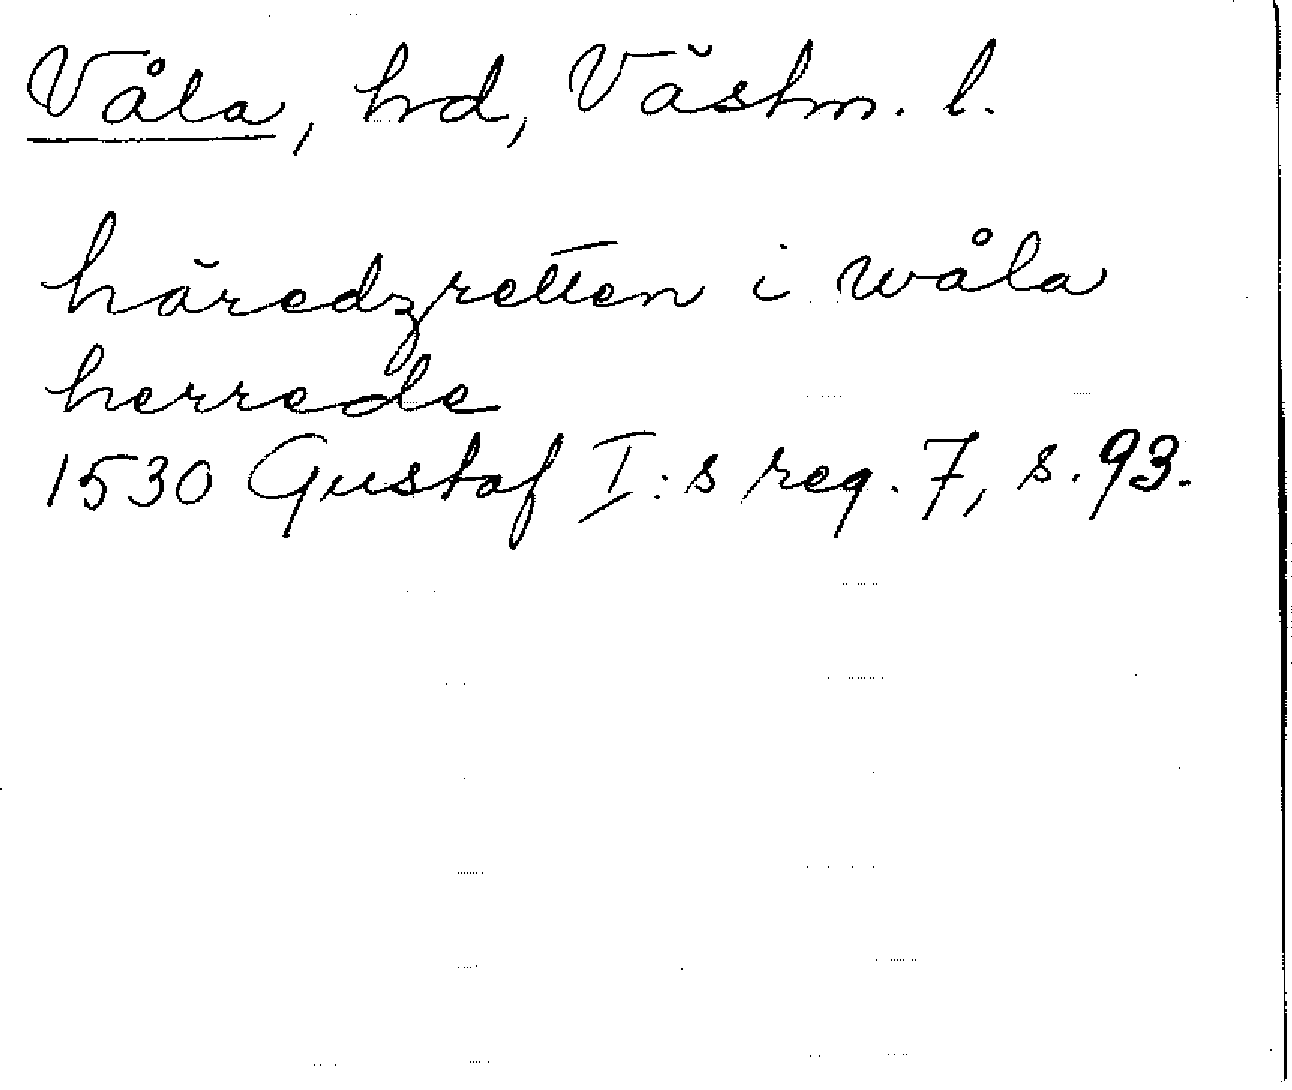 Våla, hd, Västm. l.
häredzretten i wåla
herrede
1530 Gustaf I:s reg. 7, s. 93.